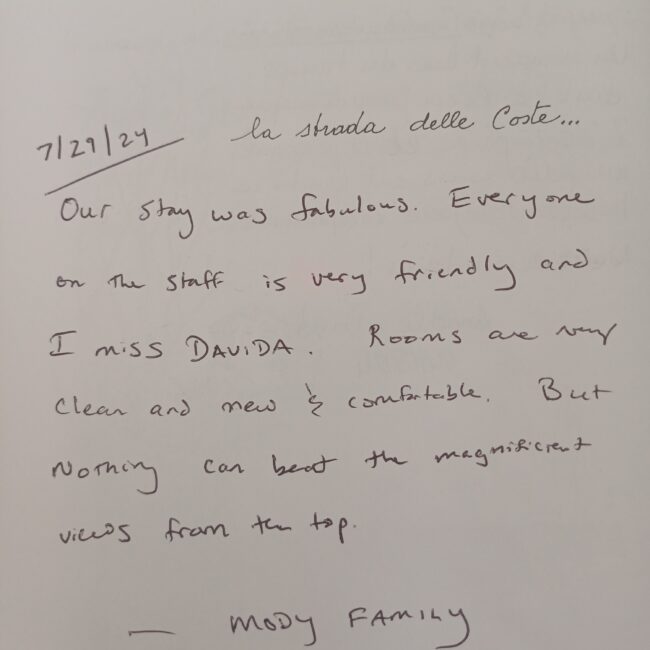 7/29/24
la strada delle Coste...
Our stay was fabulous. Everyone
on the staff is very friendly and
I miss DAVIDA. Rooms are very
clean and new & comfortable. But
Nothing can beat the magnificient
views from the top.
— MODY FAMILY